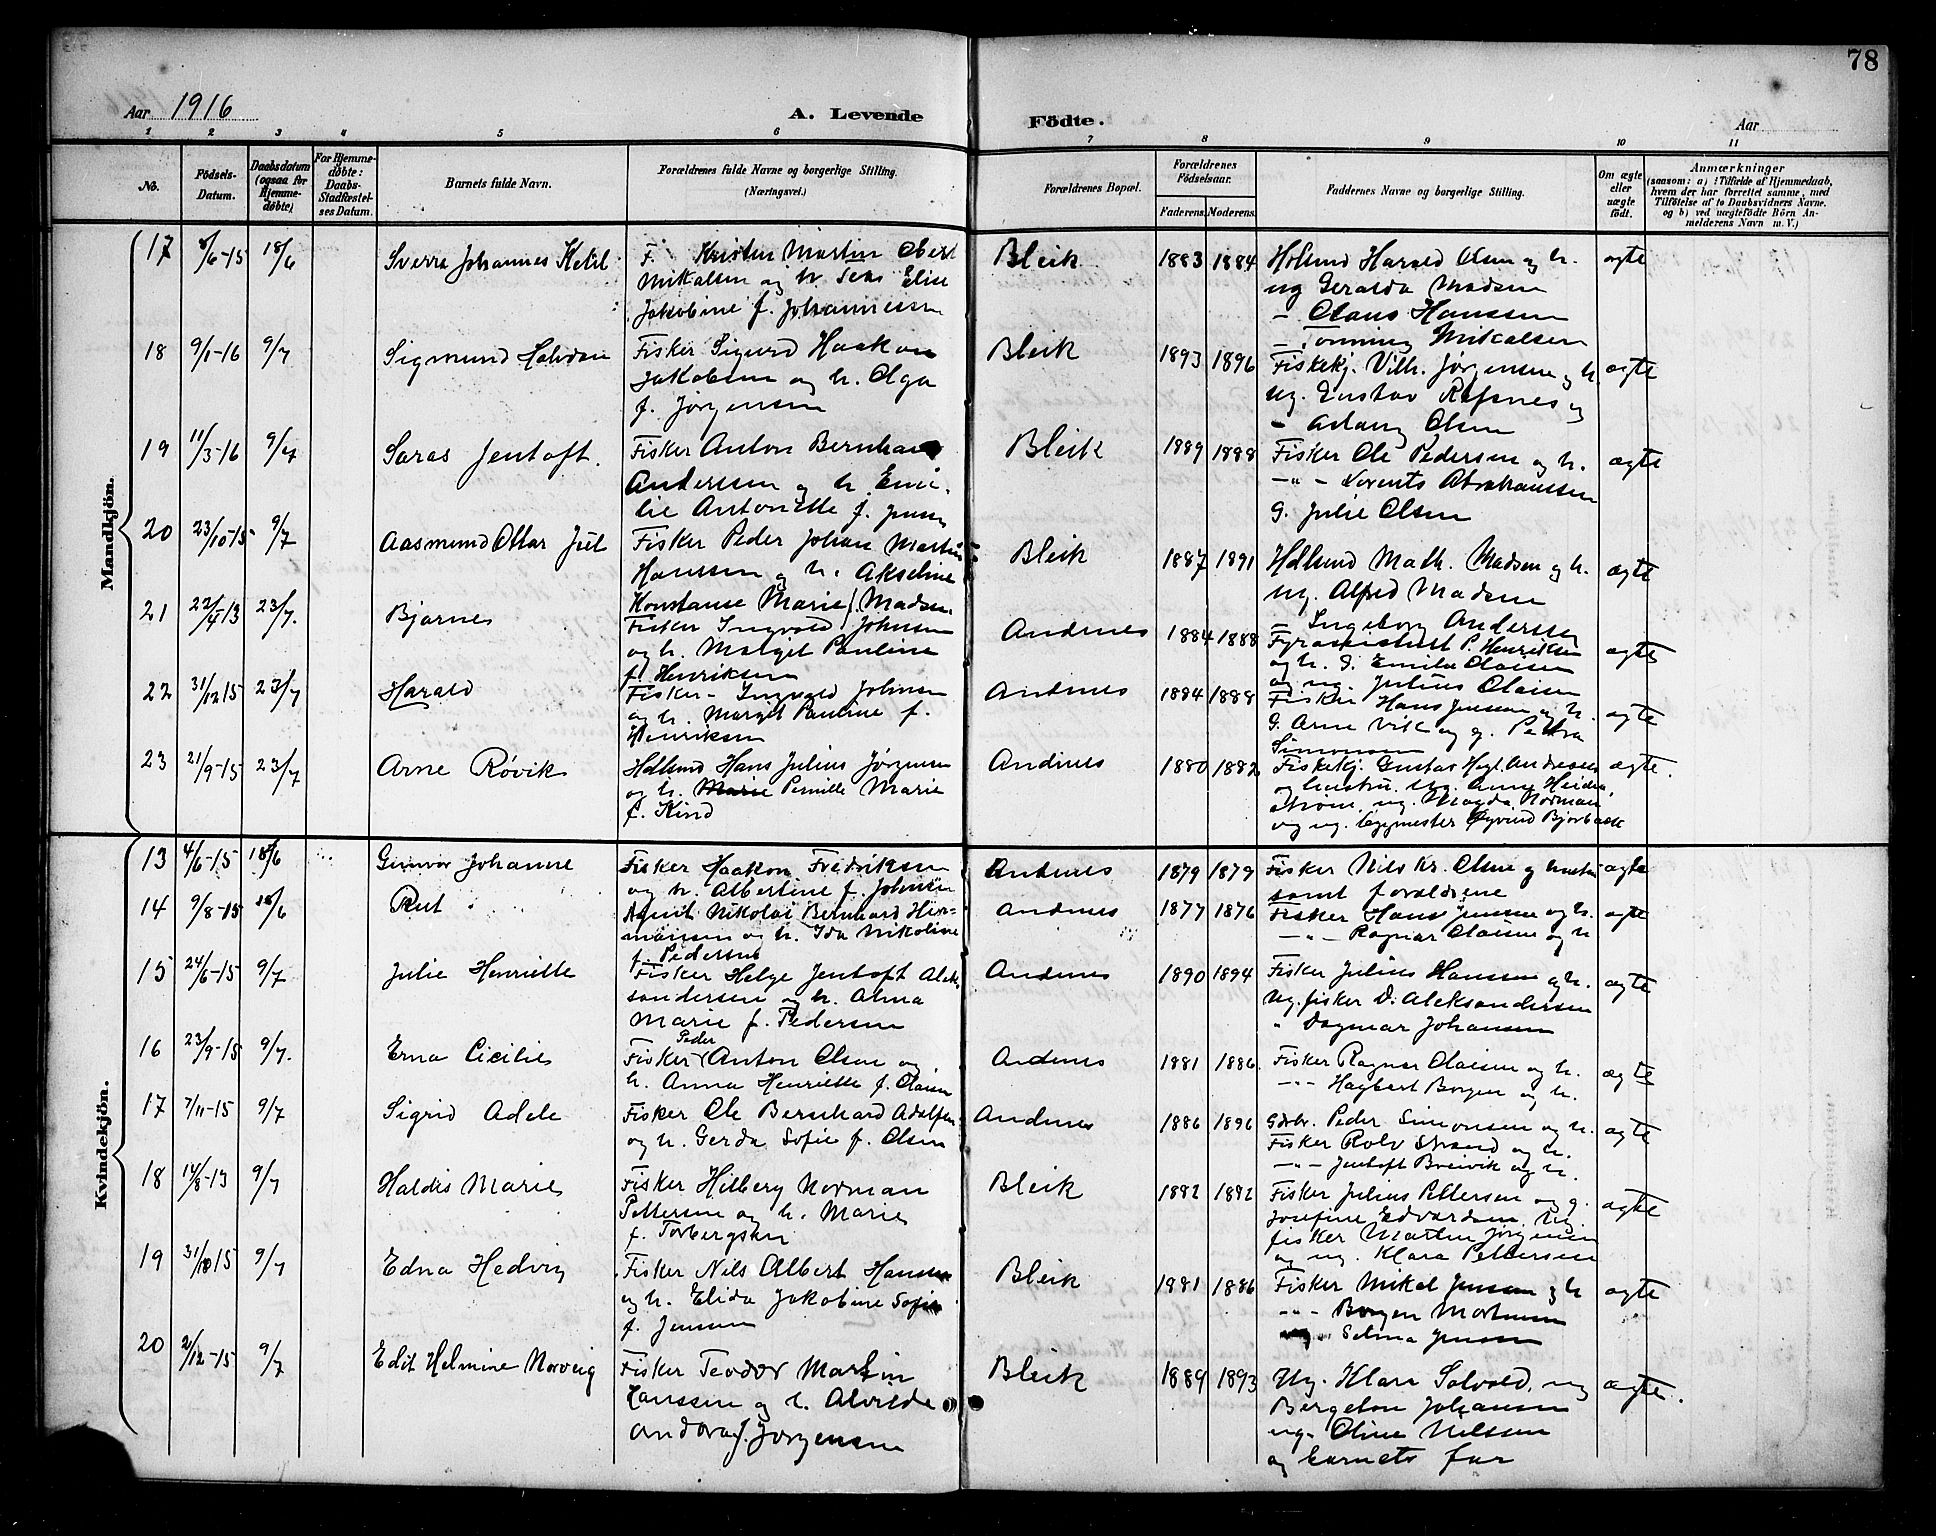 78
Aar 1916
A. Levende Födte.
Aar
1 2 3 4 5 6 7 8 9 10 11
No.
Födsels-Datum.
Daabsdatum (ogsaa for Hjemme-døbte)
For Hjemme-døbte: Daabs-Stadfæstel-ses Datum.
Barnets fulde Navn.
Forældrenes fulde Navne og borgerlige Stilling. (Næringsvei.)
Forældrenes Bopæl.
Forældrenes Födselsaar.
Faderens. Moderens.
Faddernes Navne og borgerlige Stilling.
Om ægte eller uægte födt.
Anmærkninger
(saasom: a) i Tilfælde af Hjemmedaab, hvem der har forrettet samme, med Tilföielse af to Daabsvidners Navne. og b) ved uægtefödte Börn An-melderens Navn m. V.)
Mandkjön.
17 /6-15 18/6 Sverre Johannes Ketil
F. Kristen Martin Obert
Mikalsen og h. Elise
Jakobine f. Johannessen
Bleik 1883 1884
Harald Olsen og h.
ug Geralda Madsen
- Olaus Hanssen
- Mikalsen
ægte
18 9/1-16 9/7 Sigmund Halvdan
Fisker Sigurd Haakon
Jakobsen og h. Olga
f. Jørgensen
Bleik 1893 1896
Fiskekj. Vilh. Jørgensen og h.
ug. Gustav Refsnes og
- Aslaug Olsen
ægte
19 11/3-16 9/7 Saras Jentoft.
Fisker Anton Bernhard
Anderssen og h. Emi-
lie Antonette f. Jensen
Bleik 1889 1888
Fisker Ole Pedersen og h.
-"- Lorents Abrahamssen
G. Julie Olsen
ægte
20 23/10-15 9/7 Aasmund Ottar Juel
Fisker Peder Johan Martin
Hanssen og h. Akseline
Konstanse Marie f. Madsen
Bleik 1887 1891
Math. Madsen og h.
ug. Alfred Madsen
- Ingeborg Anderssen
ægte
21 22/4-13 23/7. Bjarnes
Fisker Ingvald Johnsen
og h. Margit Pauline
f. Henriksen
Andenes 1884 1888
P. Henriksen
og h. Emilie Olaisen
og ug. Julius Olaisen
ægte
22 31/12 15 23/7 Harald
Fisker - Ingvald Johnsen
og h. Margit Pauline f.
Henriksen
Andenes 1884 1888
Fisker Hans Jenssen og h.
G. Arne Vik og g. Petra
Simonsen
ægte
23 21/9-15 23/7 Arne Røvik
Hans Julius Jørgensen
og h. Pernille Marie
f. Kind
Andenes 1880 1882
Fiskekj. Gustav Andresen
og hustru. ug. Anna Heiden-
strøm, ug. Magda Norman
og ug. Byggmester Øyvind Bjørbæk
ægte.
Kvindekjön.
13 4/6-15 18/6 Gunvor Johanne
Fisker Haakon Fredriksen
og h. Albertine f. Johnsen
Andenes 1879 1879
Fisker Nils Kr. Olsen og hustru
samt forældrene
ægte
14 9/8-15 18/6 Rut
Agent Nikolai Bernhard Her-
mansen og h. Ida Nikoline
f. Pedersen
Andenes 1877 1876
Fisker Hans Jenssen og h.
-"- Ragnar Olaisen og h
ægte
15 24/6-15 9/7 Julie Henriette
Fisker Helge Jentoft Alek-
sandersen og h. Alma
Marie f. Pedersen
Andenes 1890 1894
Fisker Julius Hanssen og h.
Ug. fisker D. Aleksandersen
" Dagmar Johansen
ægte
16 23/9-15 9/7. Erna Cicilie
Peder
Fisker Anton Olsen og
h. Anna Henriette f. Olaisen
Andenes 1881 1886.
Fisker Ragnar Olaisen og h.
-"- Hagbart Borgen og h.
ægte
17 7/11-15 9/7 Sigrid Adele
Fisker Ole Bernhard Adolfsen
og h. Gerda Sofie f. Olsen
Andenes 1886 1896
Gdbr. Peder Simonsen og h.
Fisker Rolv Strand og h.
-"- Jentoft Breivik og h.
ægte
18 14/8-13 9/7 Haldis Marie
Fisker Hilberg Norman
Pettersen og h. Marie
f. Torbergsen
Bleik 1882 1892
Fisker Julius Pettersen og g.
Josefine Edvardsen, Ug.
fisker Martin Jörgensen
og ug. Klara Pettersen
ægte
19 31/10 15 9/7 Edna Hedvig
Fisker Nils Albert Hanssen
og h. Elida Jakobine Sofie
f. Jenssen
Bleik 1881 1886
Fisker Mikal Jenssen og h
"- Borgen Mortensen
ug. Selma Jenssen
ægte
20 2/12-15 9/7 Edit Helmine Norveig
Fisker Teodor Martin
Hanssen og h. Alvilde
Andora f. Jørgensen
Bleik 1889 1893
Ug. Klara Solvold, ug
Bergeton Johansen
ug. Oline Nilssen
og barnets far
ægte.